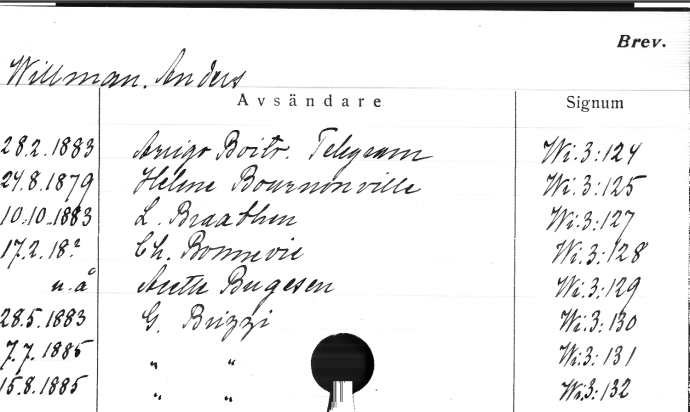 Brev.
Willman. Anders
Avsändare Signum
28.2.1883 Arrigo Boito. Telegram Wi.3:124
24.8.1879 Hélène Bournonville Wi.3:125
10.10.1883 L. Braathen Wi.3:127
17.2.18? Ch. Bonnevie Wi.3:128
u.å Bugesen Wi.3:129
28.5.1883 G. Brizzi Wi.3:130
7.7.1885 " " Wi.3:131
15.8.1885 " " Wi.3:132